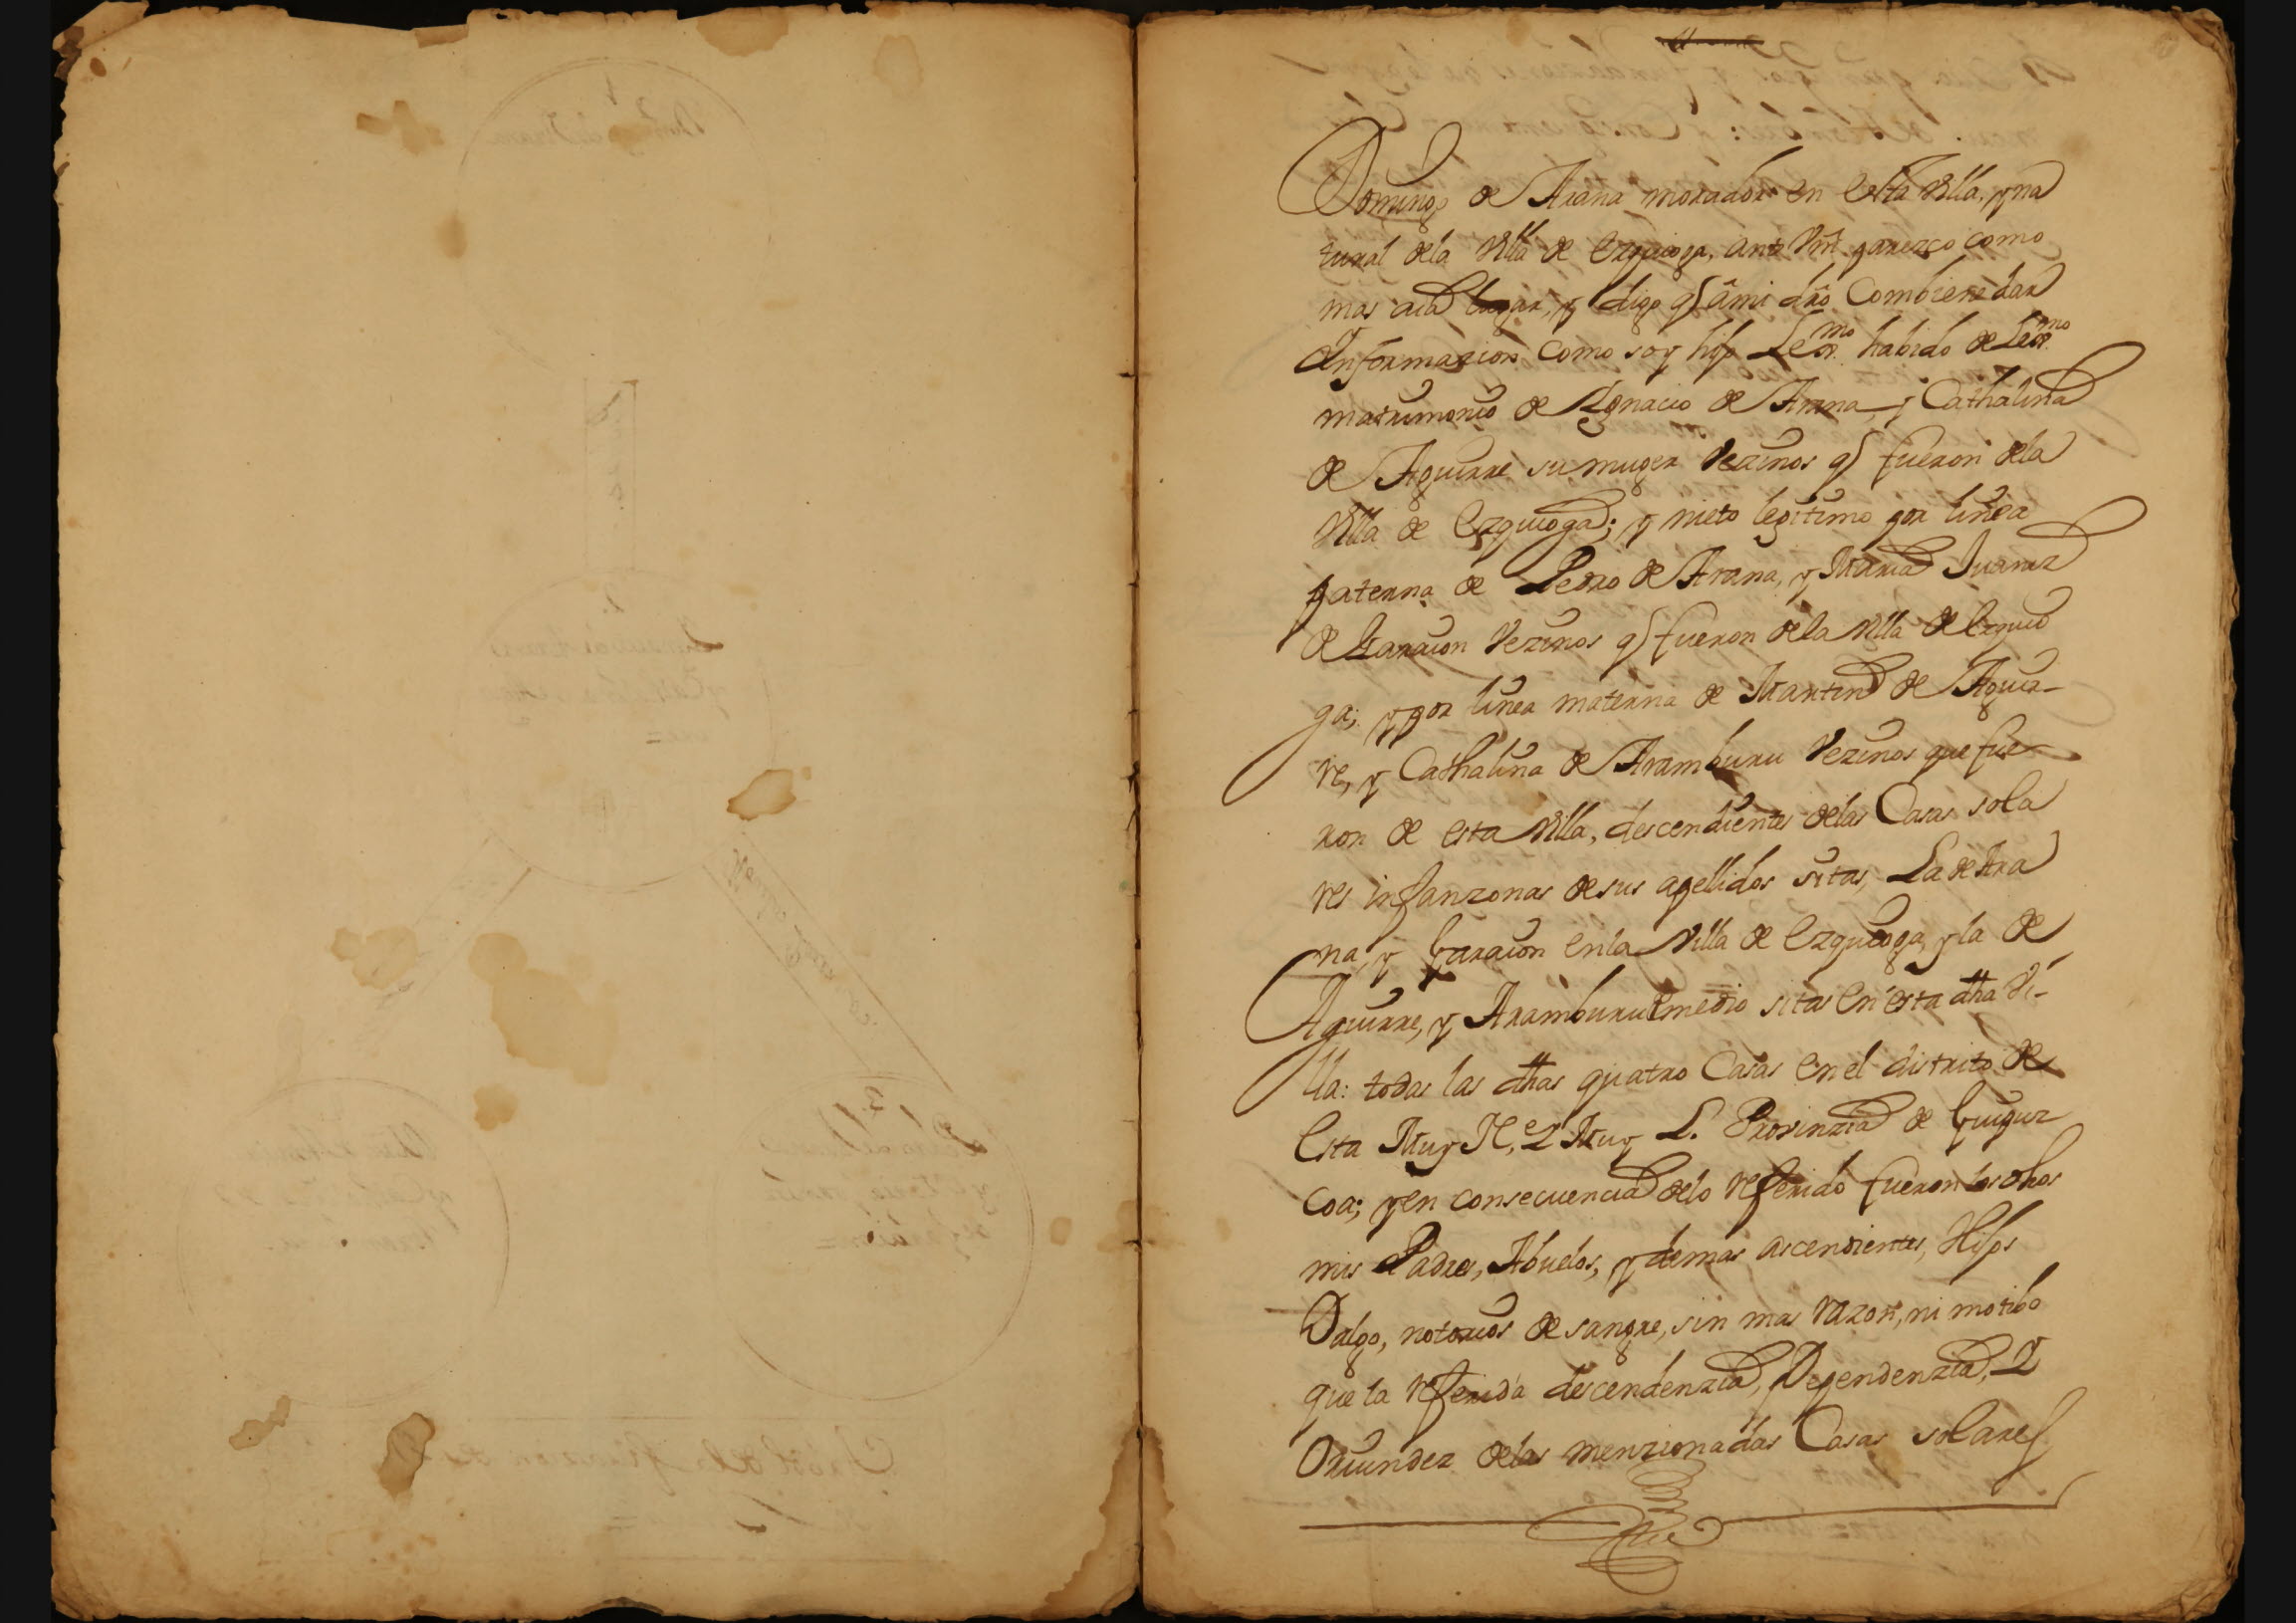 Domingo de Arana morador en esta Villa, y na
tural dela Villa de Ezquioga, ante Vm. parezco como
mas aia lugar, y digo q̃ âmi dro. Combiene dar
Informazion como soy hijo Lexmo. habido de Lexmo.
matrimonio de Ygnacio de Arana, y Cathalina
de Aguirre su muger Vezinos q̃ fueron dela
Villa de Ezquioga; y nieto legitimo por linea
paterna de Pedro de Arana, y Maria Juanez
de Garaion Vezinos q̃ fueron dela Villa de Ezquio
ga; y por linea materna de Martin de Aguir-
re, y Cathalina de Aramburu Vezinos que fue-
ron de esta Villa, descendientes delas Casas sola
res infanzonas de sus apellidos sitas, La de Ara
na, y Garaion en la Villa de Ezquioga, y la de
Aguirre, y Aramburu Emedio sitas en esta dha Vi-
lla: todas las dhas quatro Casas en el distrito de
Esta Muy N.e Y Muy L. Provinzia de Guipuz
coa; y en consecuencia delo referido fueron los dhos
mis Padres, Abuelos, y demas ascendientes, Hijos
Dalgo, notorios de sangre, sin mas razon, ni motibo
que la referida descendenzia, Dependenzia, Y
Oriundez delas menzionadas Casas solares